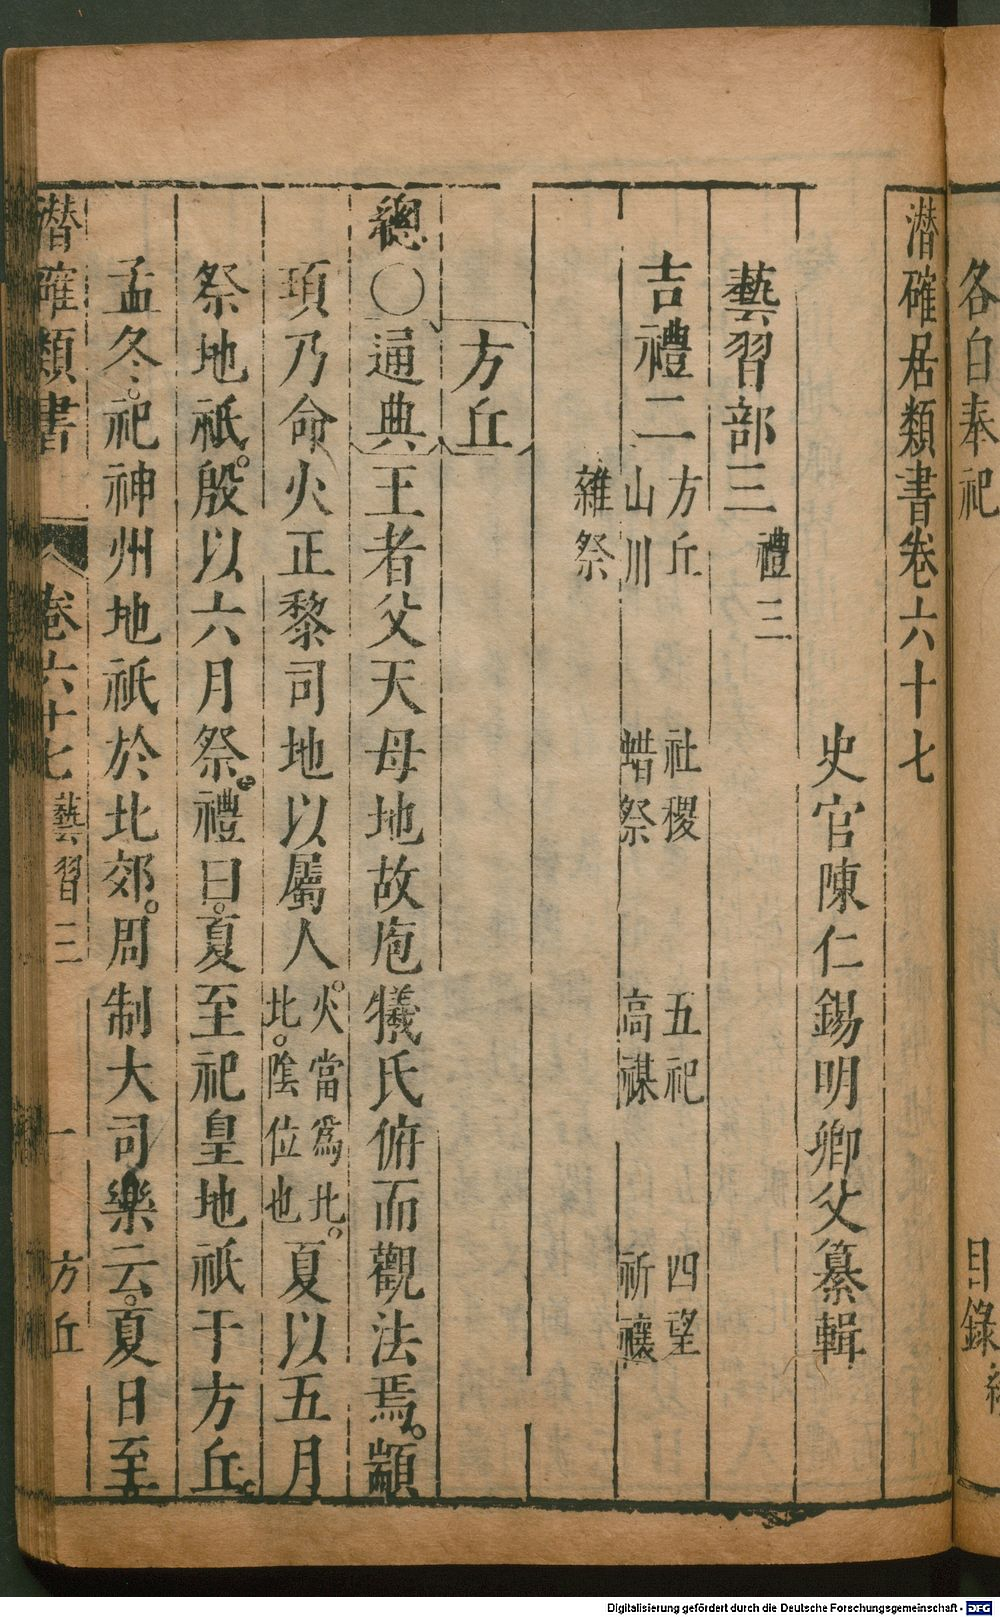 各自奉祀
目錄
潛確居類書卷六十七
史官陳仁錫明卿父纂輯
藝習部三 禮三
吉禮二
方丘 社稷 五祀 四望
山川 蜡祭 高禖 祈禳
雜祭
方丘
總〇通典王者父天母地故庖犧氏俯而觀法焉。顓
頊乃命火正黎司地以屬人。火當爲北。北。陰位也夏以五月
祭地祇。殷以六月祭。禮曰。夏至祀皇地祇于方丘。
孟冬。祀神州地祇於北郊。周制大司樂云。夏日至
潛確類書 卷六十七 藝習三 一 方丘
Digitalisierung gefördert durch die Deutsche Forschungsgemeinschaft - DFG